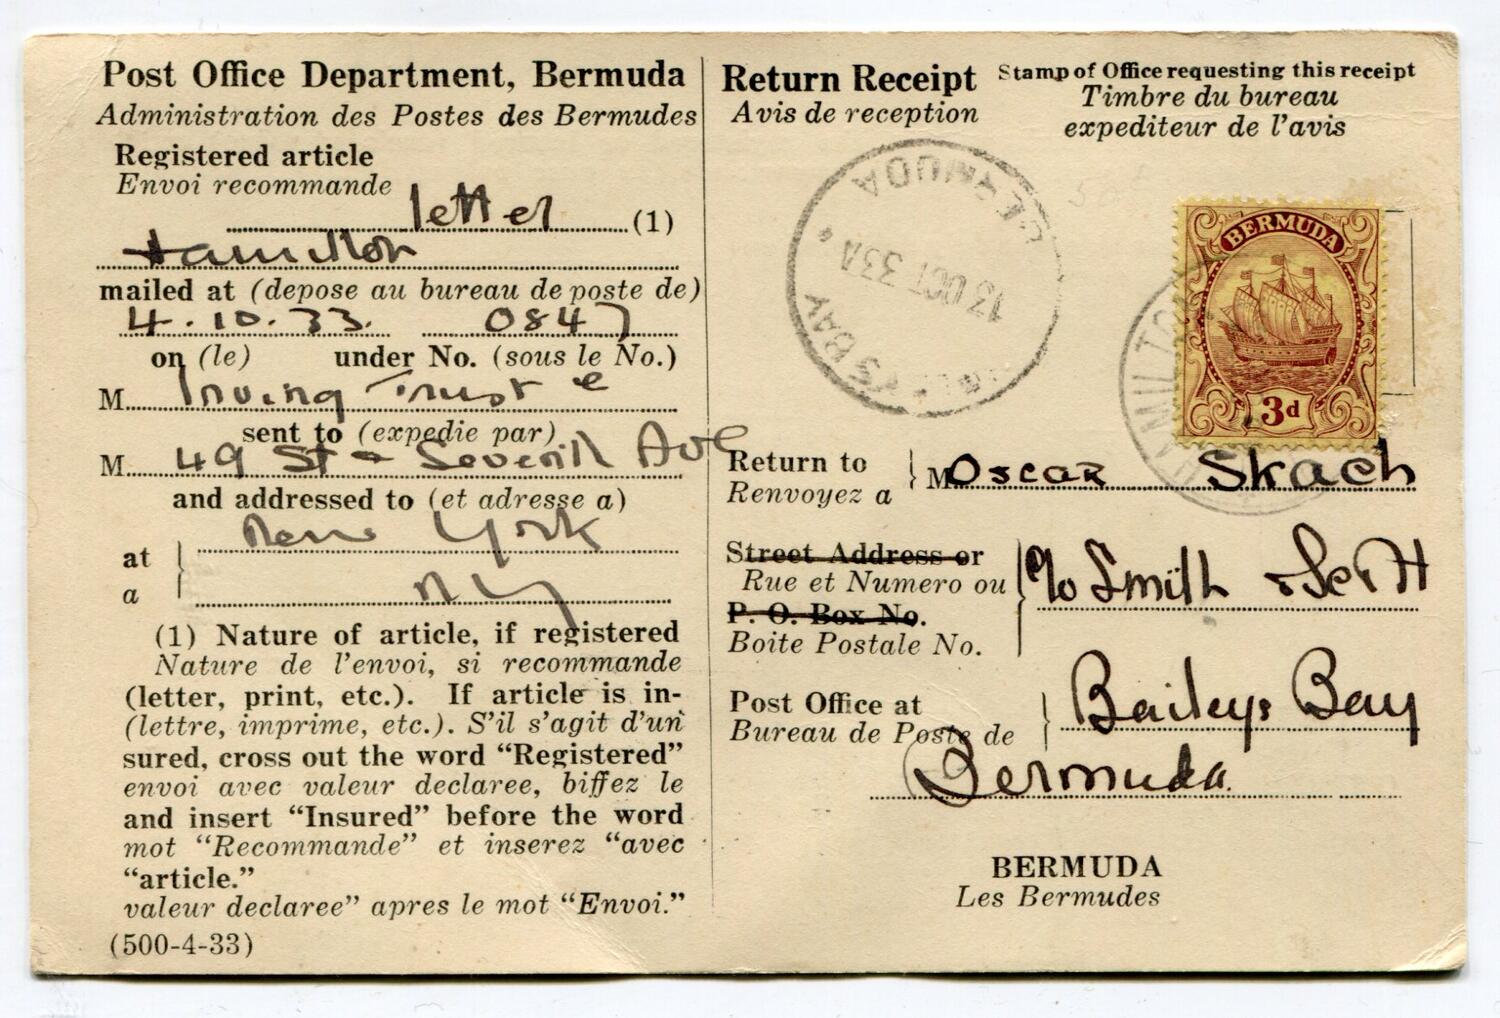 Post Office Department, Bermuda
Administration des Postes des Bermudes
Registered article
Envoi recommande
letter (1)
Hamilton
mailed at (depose au bureau de poste de)
4.10.33. 0847
on (le) under No. (sous le No.)
M Irving Trust
sent to (expedie par)
M 49 St & Seventh Ave
and addressed to (et adresse a)
at New York
a NY
(1) Nature of article, if registered
Nature de l'envoi, si recommande
(letter, print, etc.). If article is in-
(lettre, imprime, etc.). S'il s'agit d'un
sured, cross out the word “Registered”
envoi avec valeur declaree, biffez le
and insert “Insured” before the word
mot “Recommande” et inserez “avec
“article.”
valeur declaree” apres le mot “Envoi.”
(500-4-33)
Return Receipt
Avis de reception
Stamp of Office requesting this receipt
Timbre du bureau
expediteur de l'avis
BERMUDA
13 OCT 33A
'S BAY
BERMUDA
3d
HAMILTON
Return to M Oscar Skach
Renvoyez a
Street Address or
Rue et Numero ou c/o Smith
P. O. Box No.
Boite Postale No.
Post Office at Baileys Bay
Bureau de Poste de
Bermuda.
BERMUDA
Les Bermudes